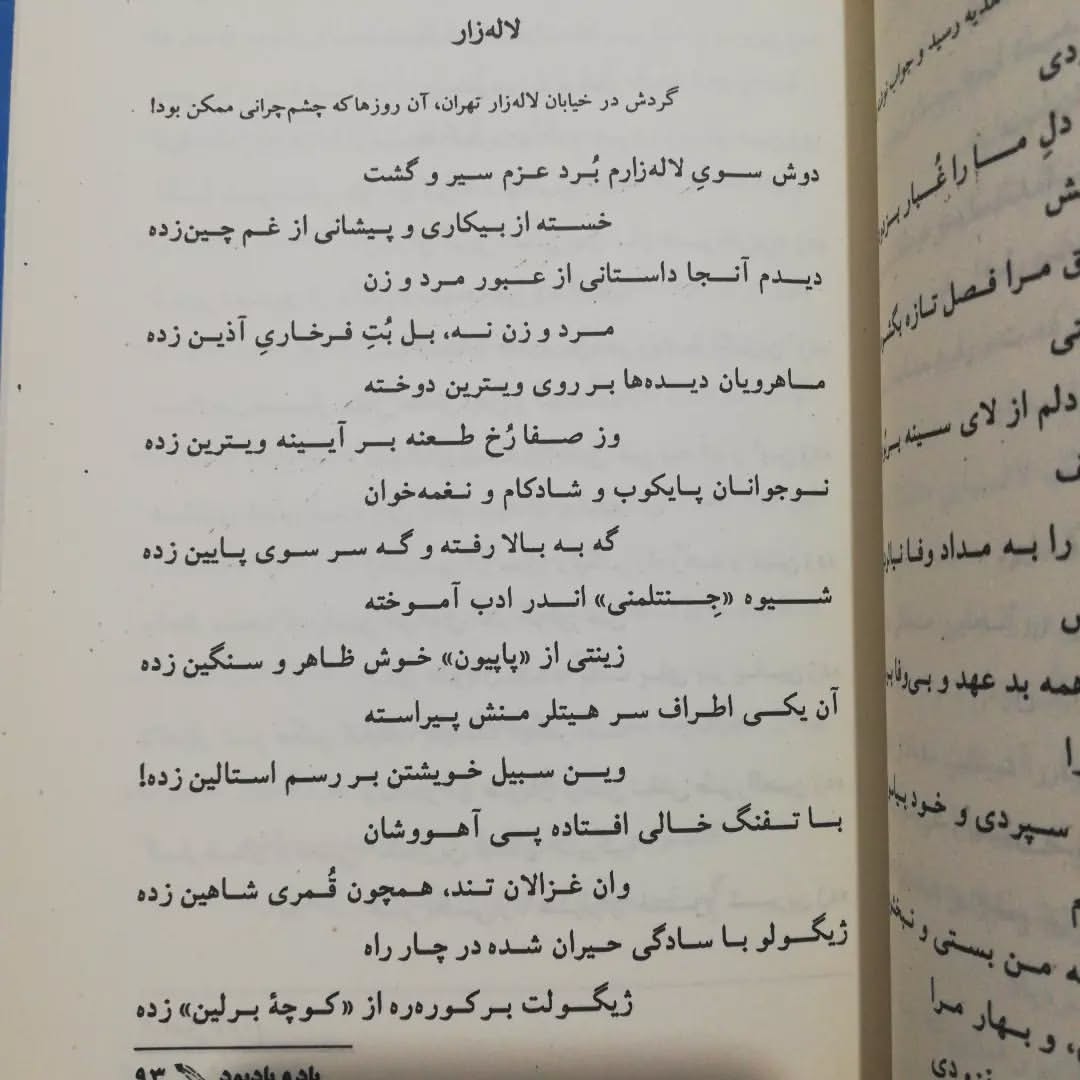 لاله‌زار
گردش در خیابان لاله‌زار تهران، آن روزها که چشم‌چرانی ممکن بود!
دوش سویِ لاله‌زارم بُرد عزم سیر و گشت
خسته از بیکاری و پیشانی از غم چین‌زده
دیدم آنجا داستانی از عبور مرد و زن
مرد و زن نه، بل بُتِ فرخاریِ آذین زده
ماهرویان دیده‌ها بر روی ویترین دوخته
وز صفا رُخ طعنه بر آیینه ویترین زده
نوجوانان پایکوب و شادکام و نغمه‌خوان
گه به بالا رفته و گه سر سوی پایین زده
شیوه «جِنتلمنی» اندر ادب آموخته
زینتی از «پاپیون» خوش ظاهر و سنگین زده
آن یکی اطراف سر هیتلر منش پیراسته
وین سبیل خویشتن بر رسم استالین زده!
با تفنگ خالی افتاده پی آهووشان
وان غزالان تند، همچون قُمری شاهین زده
ژیگولو با سادگی حیران شده در چار راه
ژیگولت برکوره‌ره از «کوچهٔ برلین» زده
یاد و یادبود ۹۳
هدیه رسید و جواب
ردی
دلِ ما را غُبار
ش
ق مرا فصل تازه
تی
دلم از لای سینه
ف
را به مداد وفا
س
همه بد عهد و بی‌وفا
را
سپردی و خود
م
ه من بستی و
، و بهار مرا